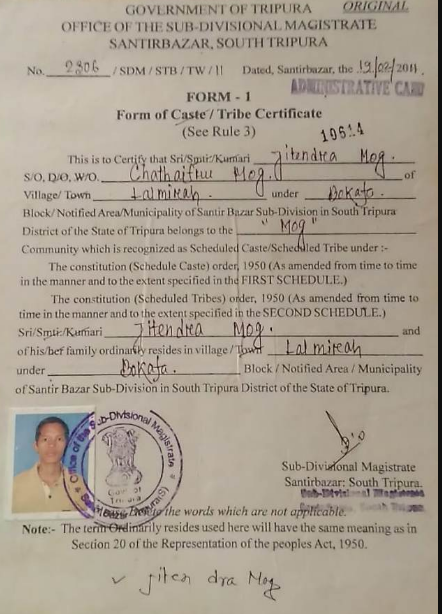 GOVERNMENT OF TRIPURA ORIGINAL
OFFICE OF THE SUB-DIVISIONAL MAGISTRATE
SANTIRBAZAR, SOUTH TRIPURA
No. 2306 / SDM / STB / TW / 11 Dated, Santirbazar, the 19/02/2011.
ADMINISTRATIVE CAMP
FORM - 1
Form of Caste / Tribe Certificate
(See Rule 3)
10514
This is to Certify that Sri/Smti/Kumari Jitendra Mog.
S/O, D/O, W/O. Chathaifru Mog. of
Village/ Town Lalmireah under Bokafa.
Block/ Notified Area/Municipality of Santir Bazar Sub-Division in South Tripura
District of the State of Tripura belongs to the "Mog"
Community which is recognized as Scheduled Caste/Scheduled Tribe under :-
The constitution (Schedule Caste) order, 1950 (As amended from time to time
in the manner and to the extent specified in the FIRST SCHEDULE.)
The constitution (Scheduled Tribes) order, 1950 (As amended from time to
time in the manner and to the extent specified in the SECOND SCHEDULE.)
Sri/Smti/Kumari Jitendra Mog. and
of his/her family ordinarily resides in village / Town Lalmireah
under Bokafa. Block / Notified Area / Municipality
of Santir Bazar Sub-Division in South Tripura District of the State of Tripura.
Office of the Sub-Divisional Magistrate
Govt of
Tripura
Sub-Divisional Magistrate
Santirbazar: South Tripura.
Sub-Divisional Magistrate
South Tripura
the words which are not applicable.
Note:- The term Ordinarily resides used here will have the same meaning as in
Section 20 of the Representation of the peoples Act, 1950.
Jiten dra Mog